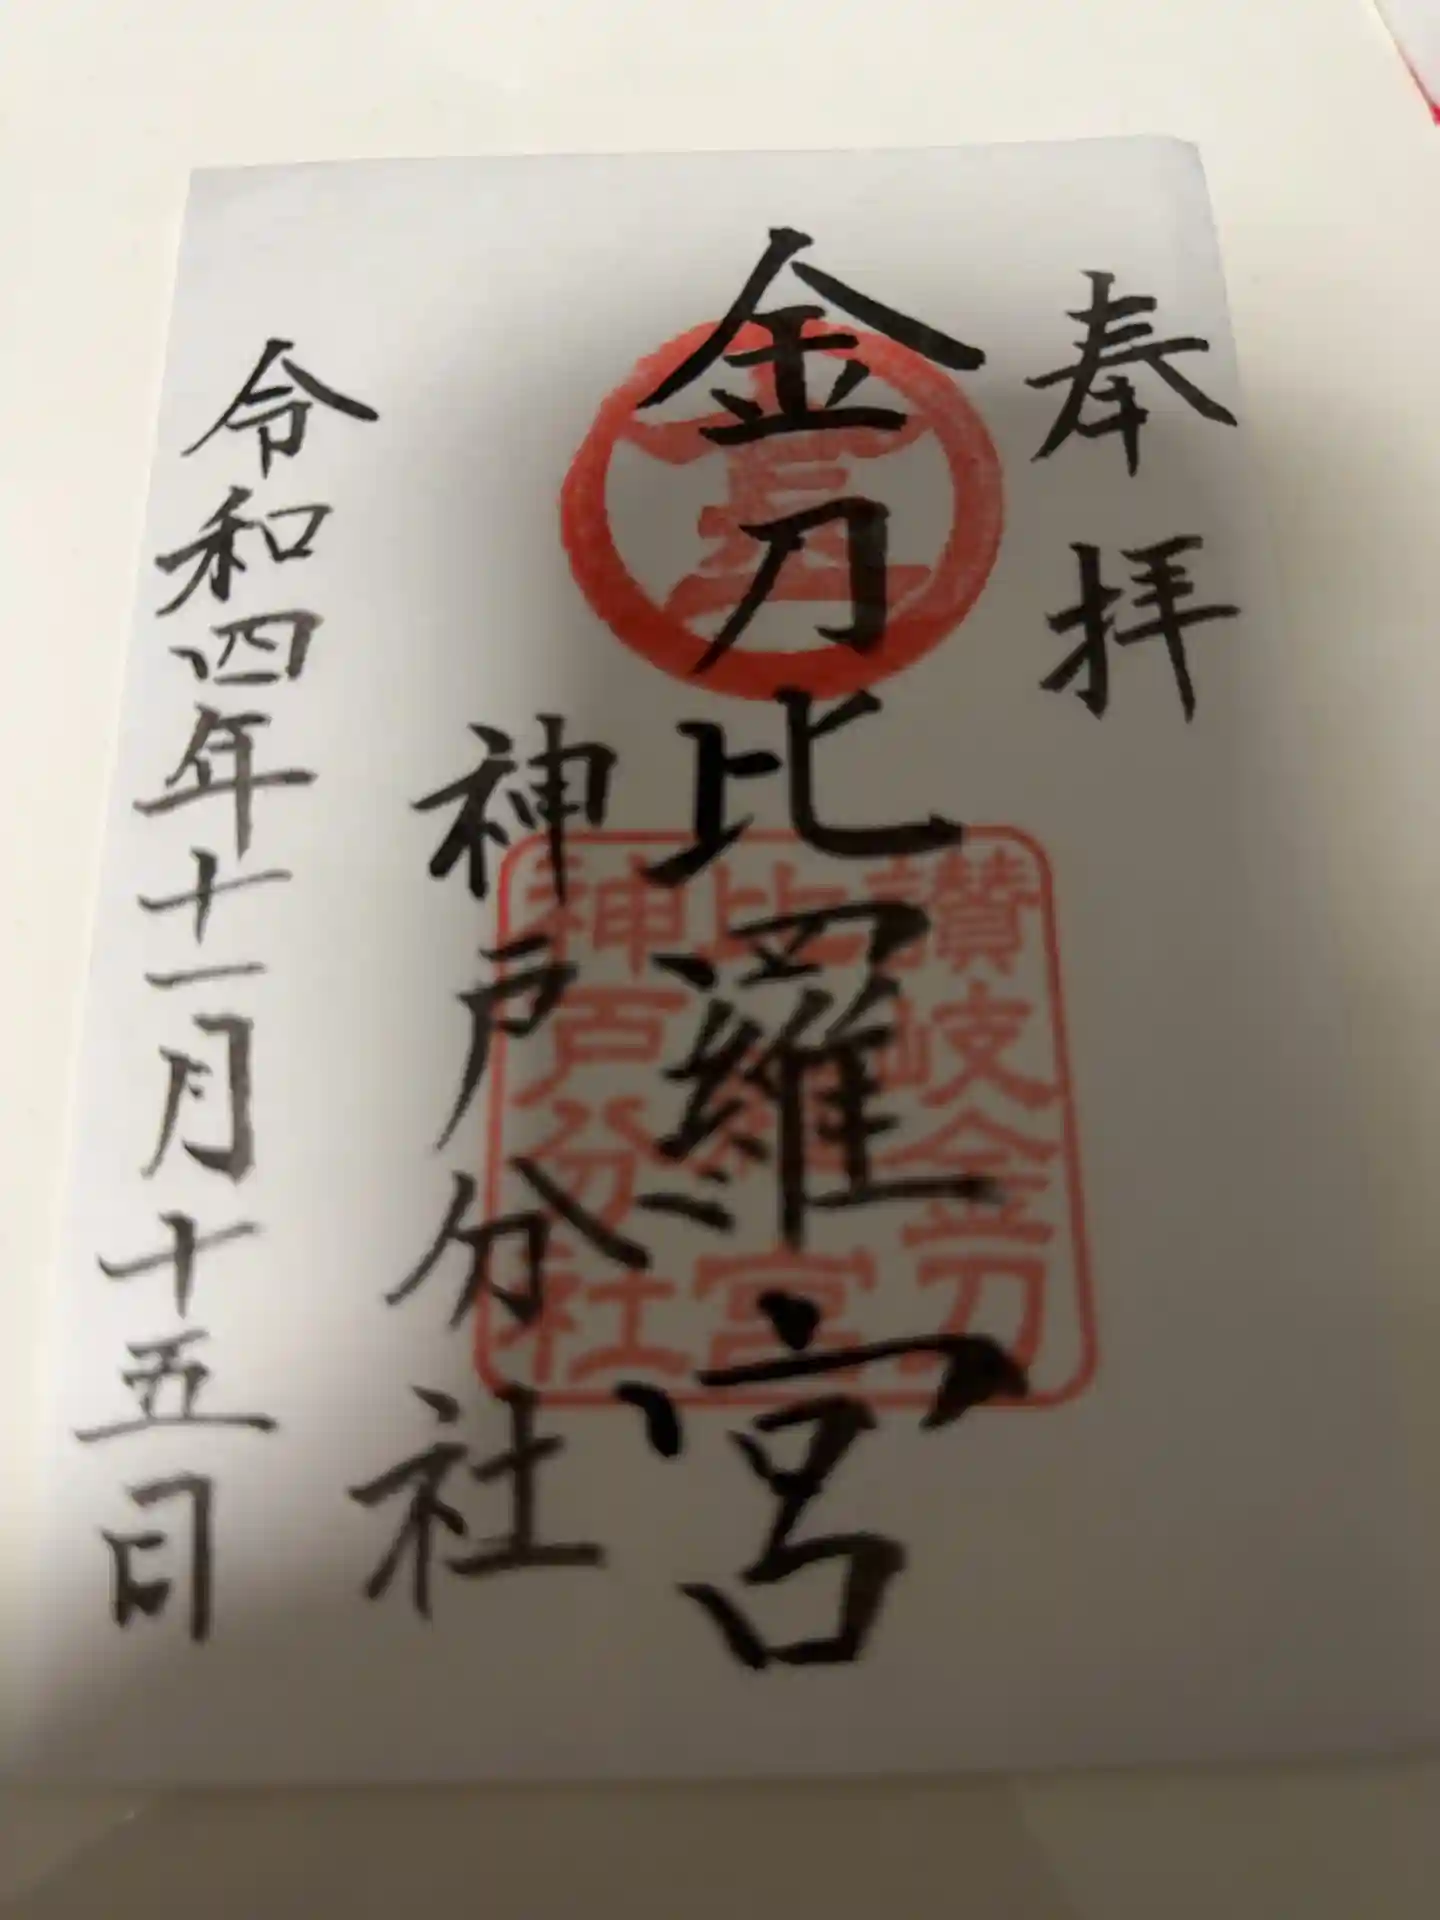 奉拝
金刀比羅宮
神戸分社
令和四年十一月十五日
金
讃岐金刀
比羅宮
神戸分社